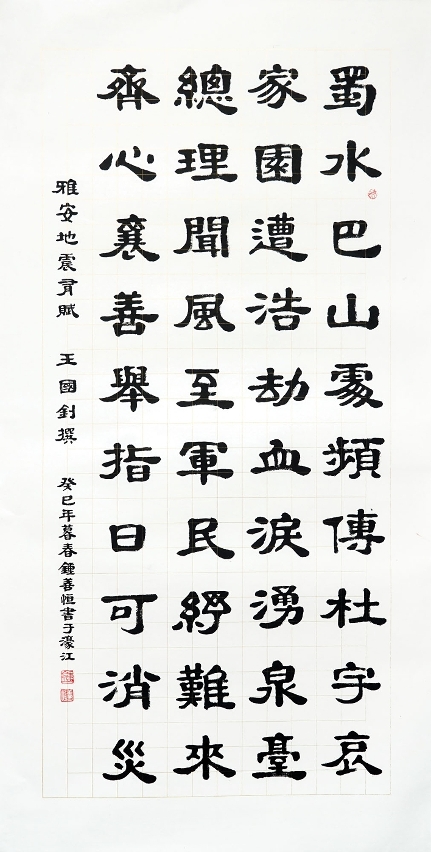 蜀水巴山處頻傳杜宇哀
家園遭浩劫血淚湧泉臺
總理聞風至軍民紓難來
齊心襄善舉指日可消災
雅安地震有賦 王國釗撰 癸巳年暮春鍾善恒書于濠江